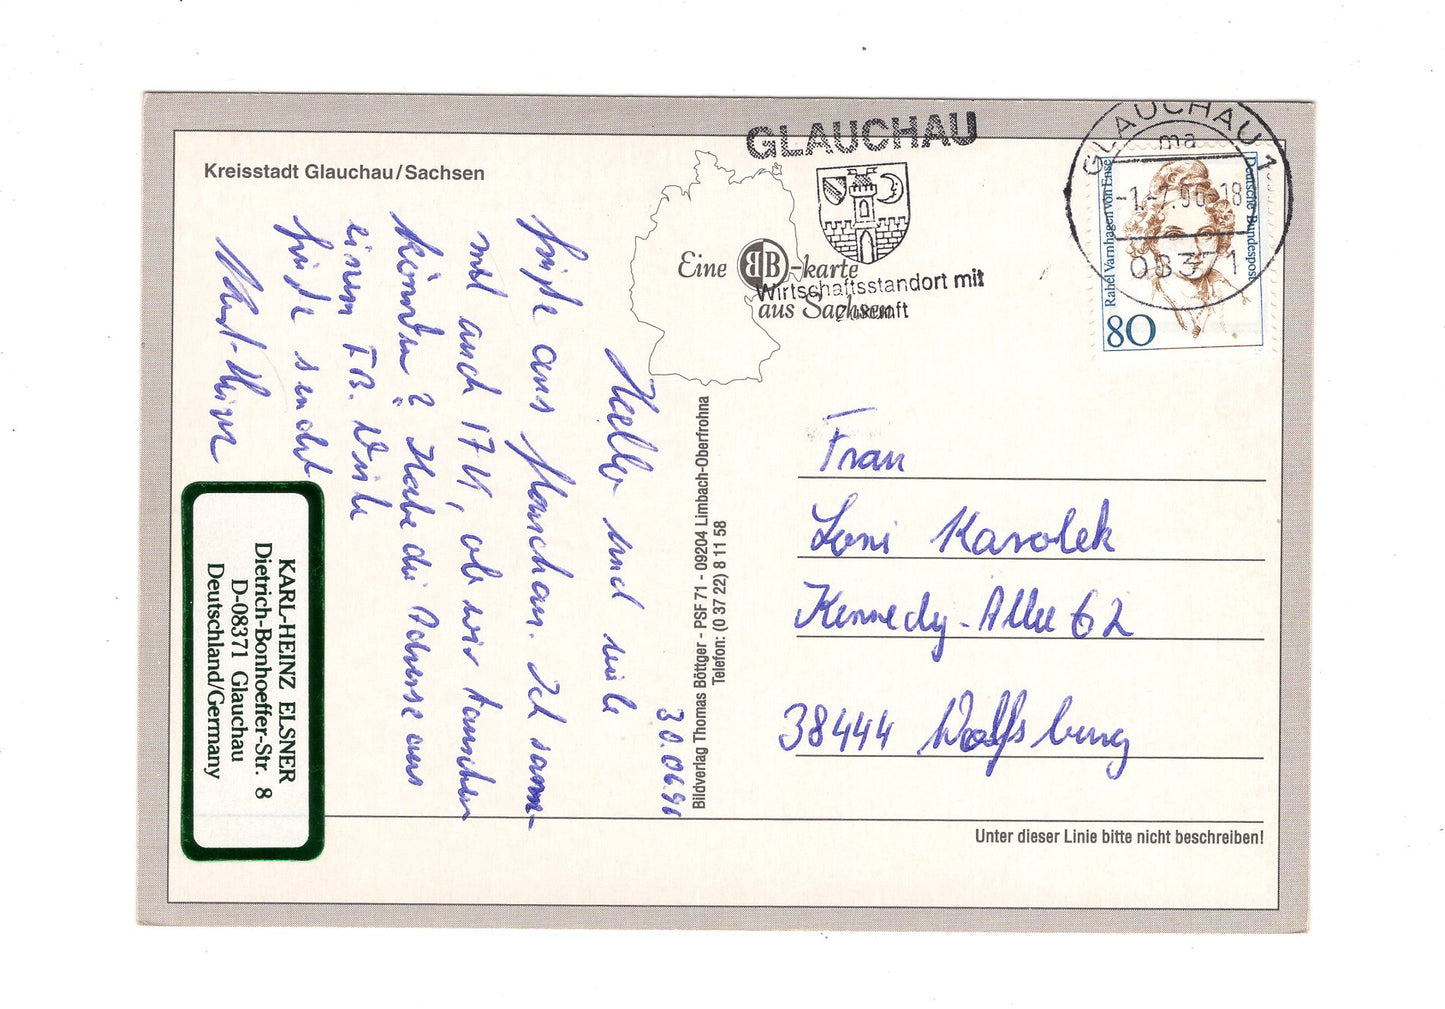 Kreisstadt Glauchau/Sachsen
GLAUCHAU
Wirtschaftsstandort mit
Zukunft
Eine BB-karte
aus Sachsen
GLAUCHAU 1
ma
-1.-7.96-18
08371
Rahel Varnhagen von Ense
Deutsche Bundespost
80
30.06.96
Hallo und viele
Grüße aus Glauchau. Ich samm-
mel auch TK, ob wir tauschen
könnten? Habe die Adresse aus
einem FB. Viele
Grüße sendet
Karl-Heinz
KARL-HEINZ ELSNER
Dietrich-Bonhoeffer-Str. 8
D-08371 Glauchau
Deutschland/Germany
Bildverlag Thomas Böttger - PSF 71 - 09204 Limbach-Oberfrohna
Telefon: (0 37 22) 8 11 58
Frau
Loni Karolek
Kennedy-Allee 62
38444 Wolfsburg
Unter dieser Linie bitte nicht beschreiben!